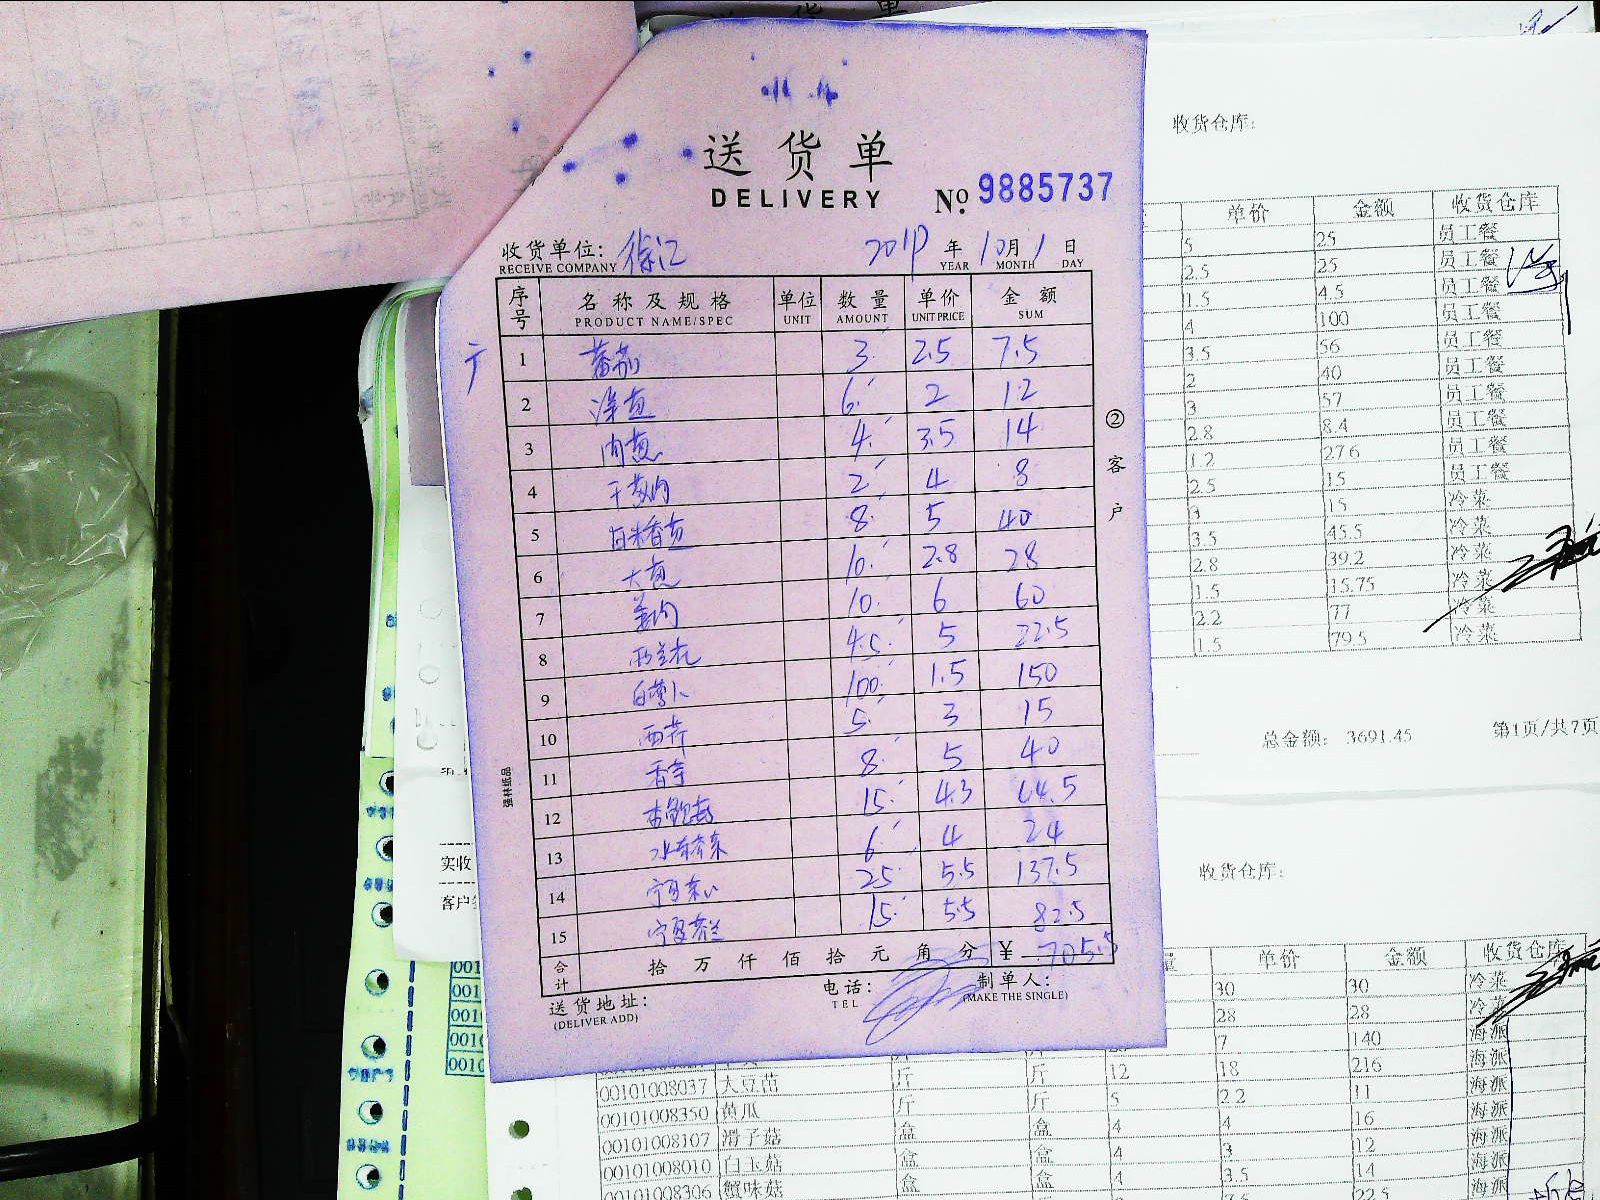 送货单
DELIVERY No. 9885737
收货单位: 徐汇 2019 年 10 月 1 日
RECEIVE COMPANY YEAR MONTH DAY
序号 名称及规格 单位 数量 单价 金额
PRODUCT NAME/SPEC UNIT AMOUNT UNIT PRICE SUM
1 蕃茄 3 2.5 7.5
2 6 2 12
3 4 3.5 14
4 2 4 8
5 8 5 40
6 大葱 10 2.8 28
7 10 6 60
8 西兰花 4.5 5 22.5
9 白萝卜 100 1.5 150
10 西芹 5 3 15
11 香芋 8 5 40
12 杏鲍菇 15 4.3 64.5
13 6 4 24
14 宁夏菜心 25 5.5 137.5
15 宁夏芥兰 15 5.5 82.5
合计 拾 万 仟 佰 拾 元 角 分 ¥ 705.5
送货地址: 电话: 制单人:
(DELIVER ADD) TEL (MAKE THE SINGLE)
②客户
收货仓库:
单价 金额 收货仓库
5 25 员工餐
2.5 25 员工餐
1.5 4.5 员工餐
4 100 员工餐
3.5 56 员工餐
2 40 员工餐
3 57 员工餐
2.8 8.4 员工餐
1.2 276 员工餐
2.5 15 员工餐
3 15 冷菜
3.5 45.5 冷菜
2.8 39.2 冷菜
1.5 15.75 冷菜
2.2 77 冷菜
1.5 79.5 冷菜
总金额: 3691.45 第1页/共7页
收货仓库:
单价 金额 收货仓库
30 30 冷菜
28 28 冷菜
7 140 海派
12 18 216 海派
00101008037 大豆苗 斤 斤 5 2.2 11 海派
00101008350 黄瓜 斤 斤 4 4 16 海派
00101008107 滑子菇 盒 盒 4 3 12 海派
00101008010 白玉菇 盒 盒 4 3.5 14 海派
00101008306 蟹味菇 盒 盒 22.5 海派
实收
客户